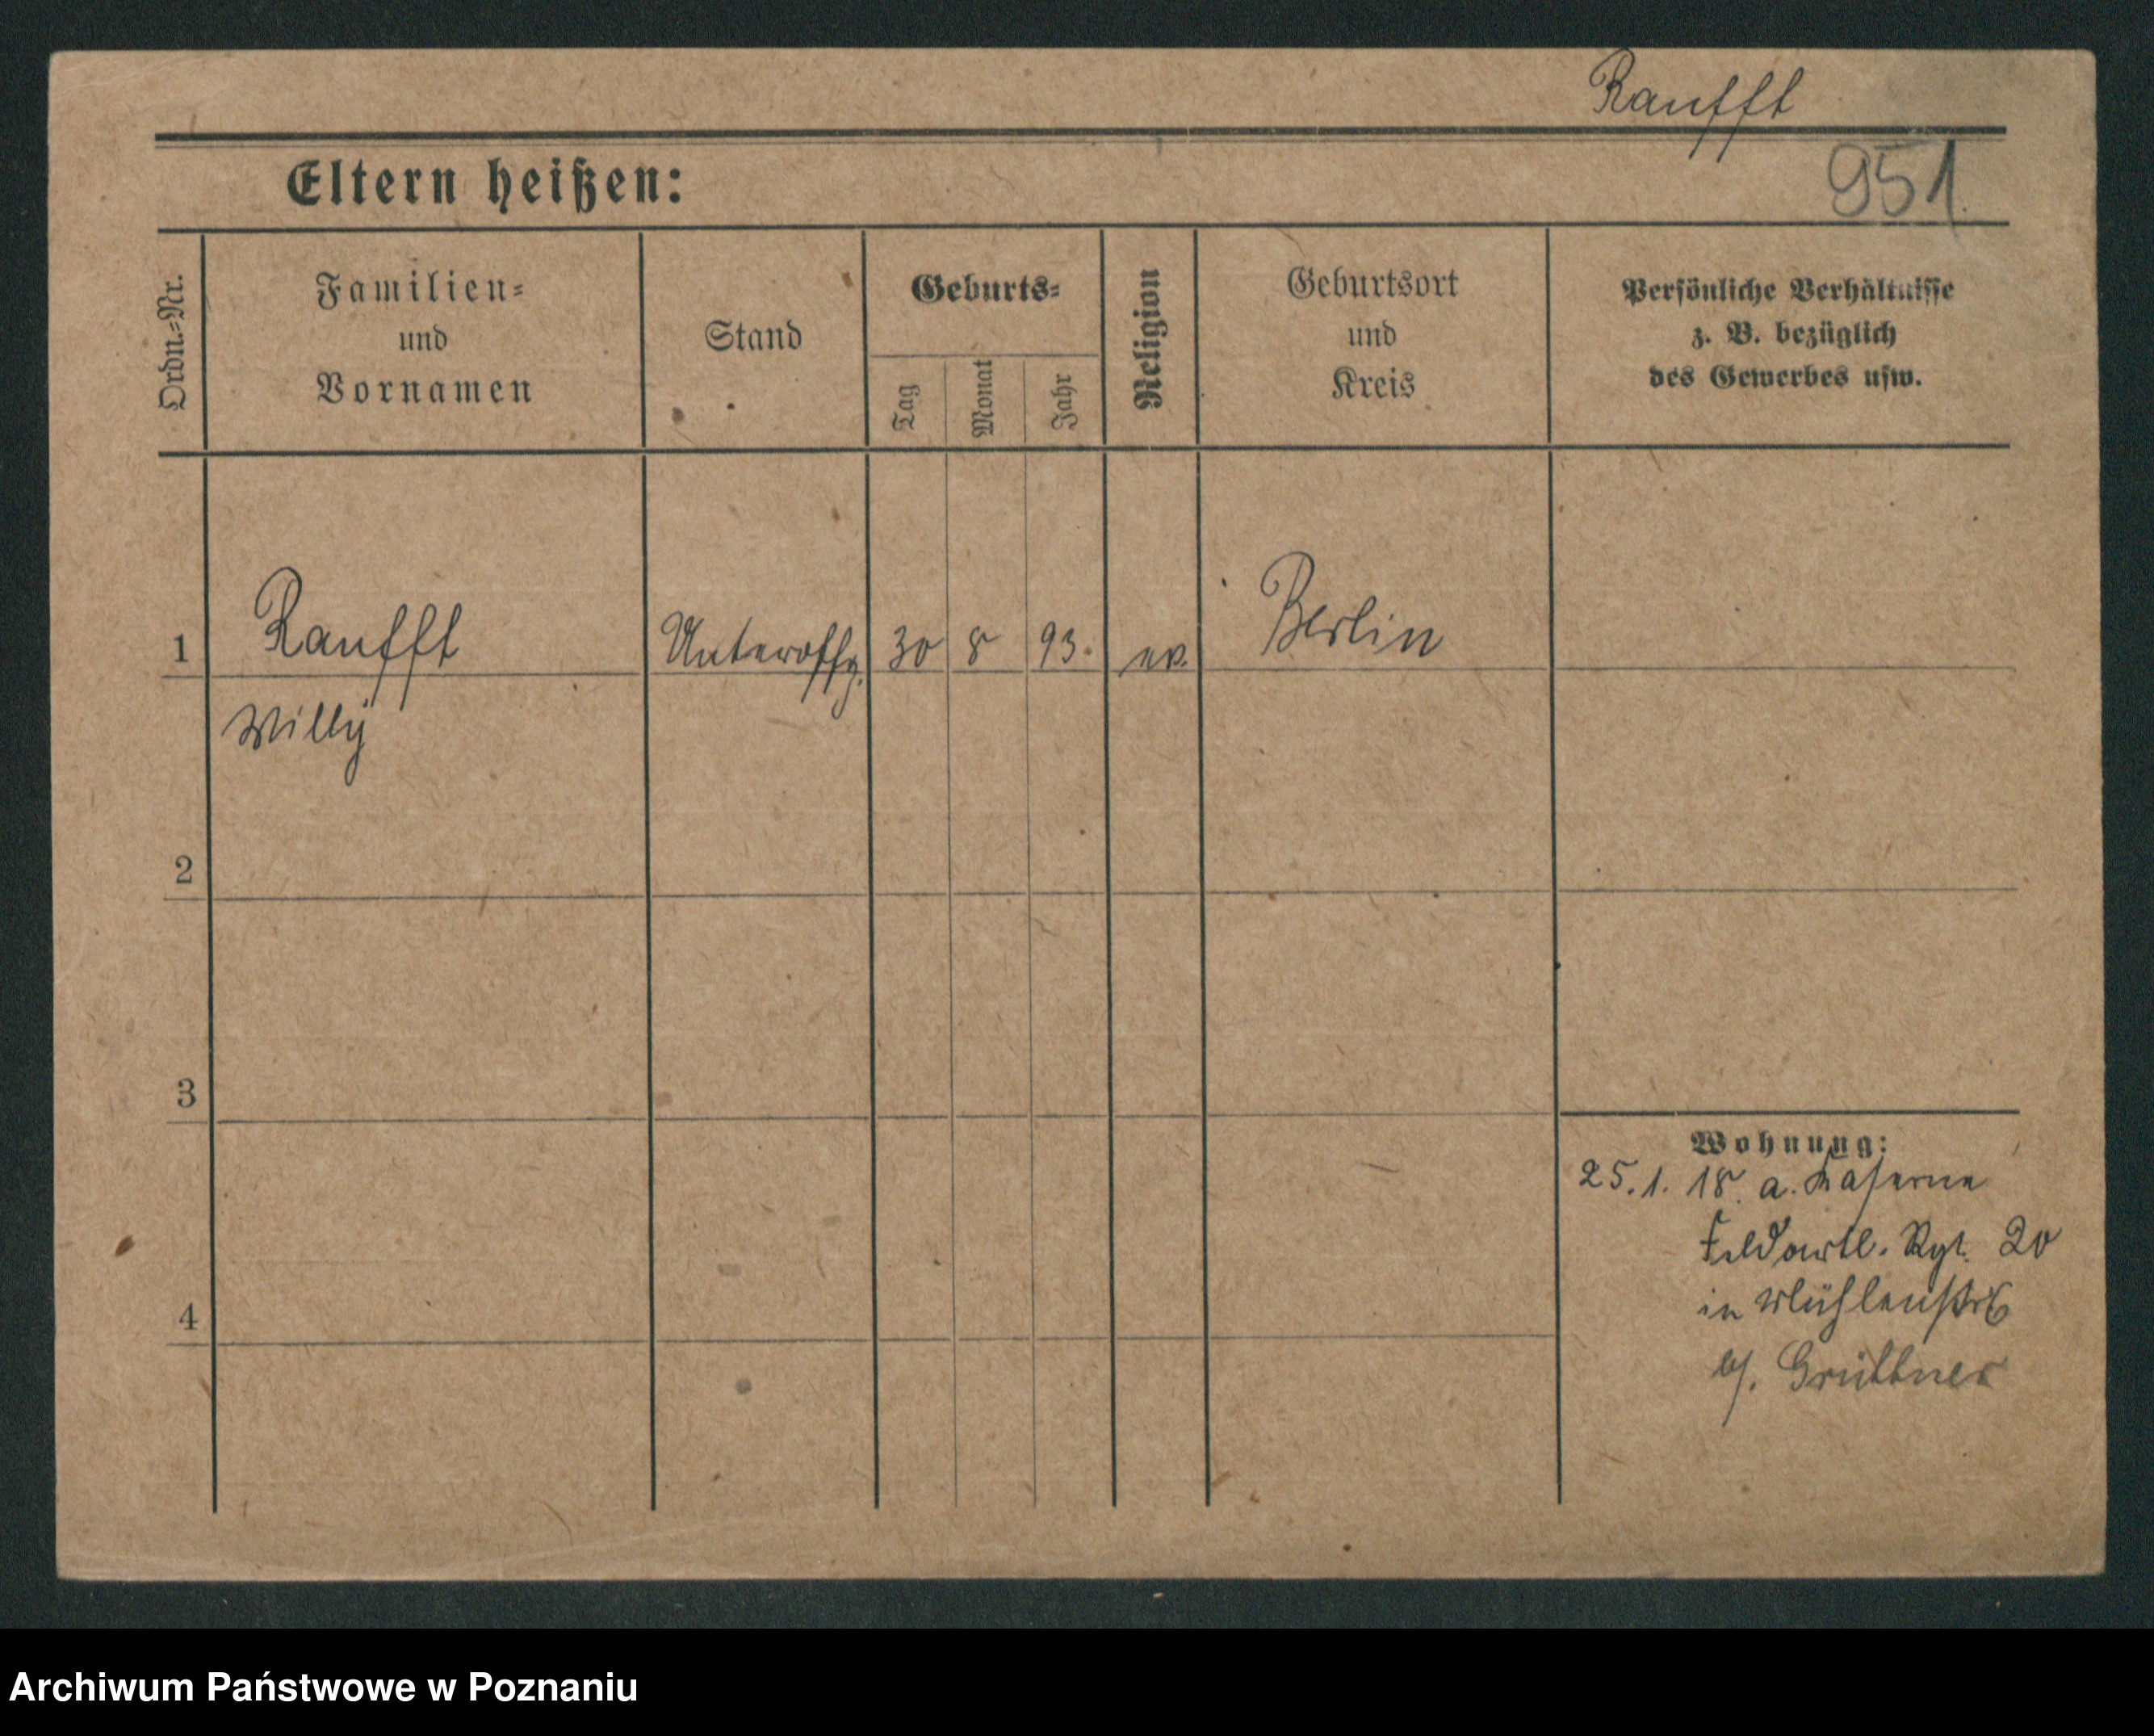 Raufft
Eltern heißen:
951.
Ordn.=Nr.
Familien=
und
Vornamen
Stand
Geburts=
Tag
Monat
Jahr
Religion
Geburtsort
und
Kreis
Persönliche Verhältnisse
z. B. bezüglich
des Gewerbes usw.
1 Raufft Unteroffz. 30 8 93. ev. Berlin
Willy
2
3
Wohnung:
25.1. 18. a. Kaserne
Feldartl. Rgt. 20
in Mühlenstr 6
b/. Grüttner
4
Archiwum Państwowe w Poznaniu